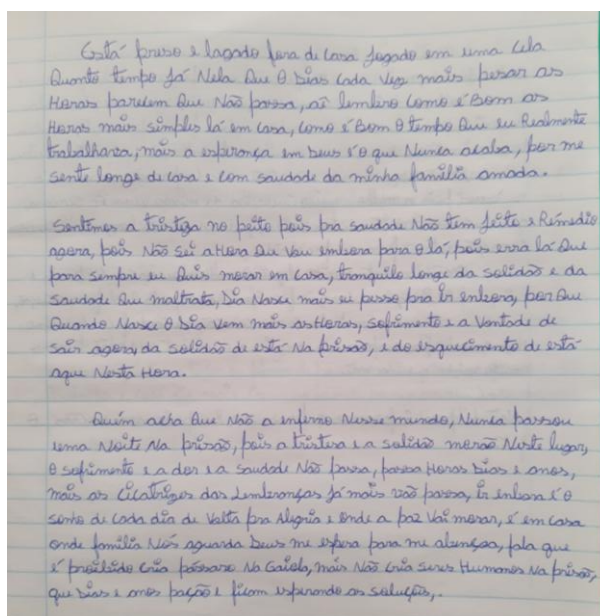 Está preso e lagado fora de casa jogado em uma cela
Quanto tempo já Nela Que O Dias cada vez mais pesar as
Horas parecem Que Não passa, aí lembro como é Bom as
Horas mais simples lá em casa, como é Bom O tempo Que eu Realmente
trabalhava, mais a esperança em Deus é o que Nunca acaba, por me
sente longe de casa e com saudade da minha família amada.

Sentimos a tristeza no peito pois pra saudade Não tem jeito e Remédio
agora, pois Não sei a Hora Que Vou embora para O lá, pois erra lá Que
para sempre eu Quis morar em casa, tranquilo longe da solidão e da
saudade Que maltrata, Dia Nasce mais eu peço pra Ir embora, por Que
Quando Nasce O Dia vem mais as Horas, sofrimento e a Vontade de
sair agora, da solidão de está Na prisão, e do esquecimento de está
aque Nesta Hora.

Quim acha Que Não a inferno Nesse mundo, Nunca passou
uma Noite Na prisão, pois a tristeza e a solidão morão Neste lugar,
O sofrimento e a dor e a saudade Não passa, passa Horas Dias e anos,
mais as Cicatrizes das Lembranças já mais vão passa, Ir embora é O
sonho de cada dia de Volta pra Alegria e onde a paz Vai morar, é em casa
onde família Nós aguarda Deus me espera para me abençoa, fala que
é proibido cria pássaro Na Gaiola, mais Não cria seres Humanos Na prisão,
que Dias e anos pação e ficam esperando as soluções,.